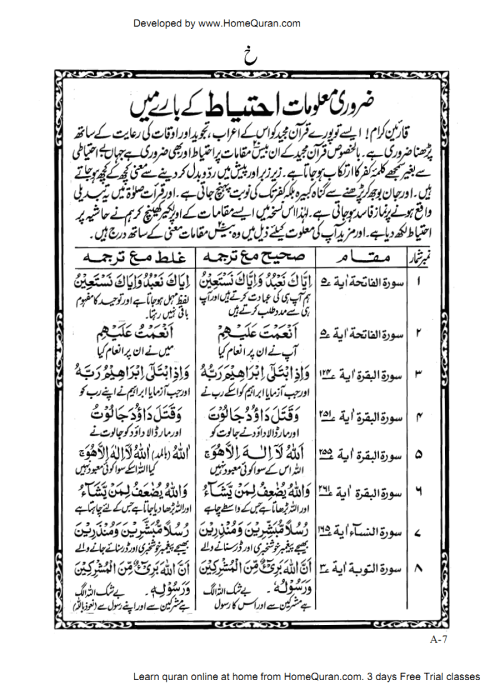 Developed by www.HomeQuran.com
خ
ضروری معلومات احتیاط کے بارے میں
قارئین کرام! ایسے تو پورے قرآن مجید کو اس کے اعراب، تجوید اور اوقات کی رعایت کے ساتھ
پڑھنا ضروری ہے۔ بالخصوص قرآن مجید کے ان بیس مقامات پر احتیاط اور بھی ضروری ہے جہاں بے احتیاطی
سے بغیر سمجھے کلمۂ کفر کا ارتکاب ہو جاتا ہے۔ زیر زبر اور پیش میں ردّ و بدل کر دینے سے معنی کچھ کے کچھ ہو جاتے
ہیں۔ اور جان بوجھ کر پڑھنے سے گناہ کبیرہ بلکہ کفر تک کی نوبت پہنچ جاتی ہے۔ اور قرأت صلوٰۃ میں یہ تبدیلی
واقع ہونے پر نماز فاسد ہو جاتی ہے۔ لہٰذا اس نسخہ میں ایسے مقامات کے اوپر لکیر کھینچ کر ہم نے حاشیہ پر
احتیاط لکھ دیا ہے۔ اور مزید آپ کی معلومات کیلئے ذیل میں وہ بیس مقامات معنی کے ساتھ درج ہیں۔
نمبر شمار مقام صحیح مع ترجمہ غلط مع ترجمہ
۱ سورة الفاتحة آية اِيَّاكَ نَعْبُدُ وَاِيَّاكَ نَسْتَعِيْنُ اِيَاكَ نَعْبُدُ وَاِيَاكَ نَسْتَعِيْنُ
ہم آپ ہی کی عبادت کرتے ہیں اور آپ لفظ مہمل ہو جاتا ہے اور توحید کا مفہوم
ہی سے مدد طلب کرتے ہیں باقی نہیں رہتا۔
۲ سورة الفاتحة آية اَنْعَمْتَ عَلَيْهِمْ اَنْعَمْتُ عَلَيْهِمْ
آپ نے ان پر انعام کیا میں نے ان پر انعام کیا
۳ سورة البقرة آية ۱۲۴ وَاِذِ ابْتَلٰٓى اِبْرٰهِيْمَ رَبُّهٗ وَاِذِ ابْتَلٰٓى اِبْرٰهِيْمُ رَبَّهٗ
اور جب آزمایا ابراہیم کو اسکے رب نے اور جب آزمایا ابراہیم نے اپنے رب کو
۴ سورة البقرة آية ۲۵۱ وَقَتَلَ دَاوٗدُ جَالُوْتَ وَقَتَلَ دَاوٗدَ جَالُوْتُ
اور مار ڈالا داؤد نے جالوت کو اور مار ڈالا داؤد کو جالوت نے
۵ سورة البقرة آية ۲۵۵ اَللّٰهُ لَآ اِلٰهَ اِلَّا هُوَ اَللّٰهُ (بالمد) آللّٰهُ لَآ اِلٰهَ اِلَّا هُوَ
اللہ اس کے سوا کوئی معبود نہیں کیا اللہ اسکے سوا کوئی معبود نہیں
۶ سورة البقرة آية ۲۶۱ وَاللّٰهُ يُضٰعِفُ لِمَنْ يَّشَآءُ وَاللّٰهُ يُضٰعَفُ لِمَنْ يَّشَآءُ
اور اللہ بڑھاتا ہے جس کے واسطے چاہے اور اللہ بڑھا دیا جاتا ہے جس کے لئے چاہتا ہے
۷ سورة النسآء آية ۱۶۵ رُسُلًا مُّبَشِّرِيْنَ وَمُنْذِرِيْنَ رُسُلًا مُّبَشِّرِيْنَ وَمُنْذَرِيْنَ
بھیجے پیغمبر خوشخبری اور ڈر سنانے والے بھیجے پیغمبر خوشخبری اور ڈر سنائے جانے والے
۸ سورة التوبة آية ۳ اَنَّ اللّٰهَ بَرِىْٓءٌ مِّنَ الْمُشْرِكِيْنَ اَنَّ اللّٰهَ بَرِىْٓءٌ مِّنَ الْمُشْرِكِيْنَ
وَرَسُوْلُهٗ۔ بے شک اللہ الگ وَرَسُوْلِهٖ۔ بے شک اللہ الگ
ہے مشرکین سے اور اس کا رسول ہے مشرکین سے اور اپنے رسول سے (نعوذ باللہ)
A-7
Learn quran online at home from HomeQuran.com. 3 days Free Trial classes